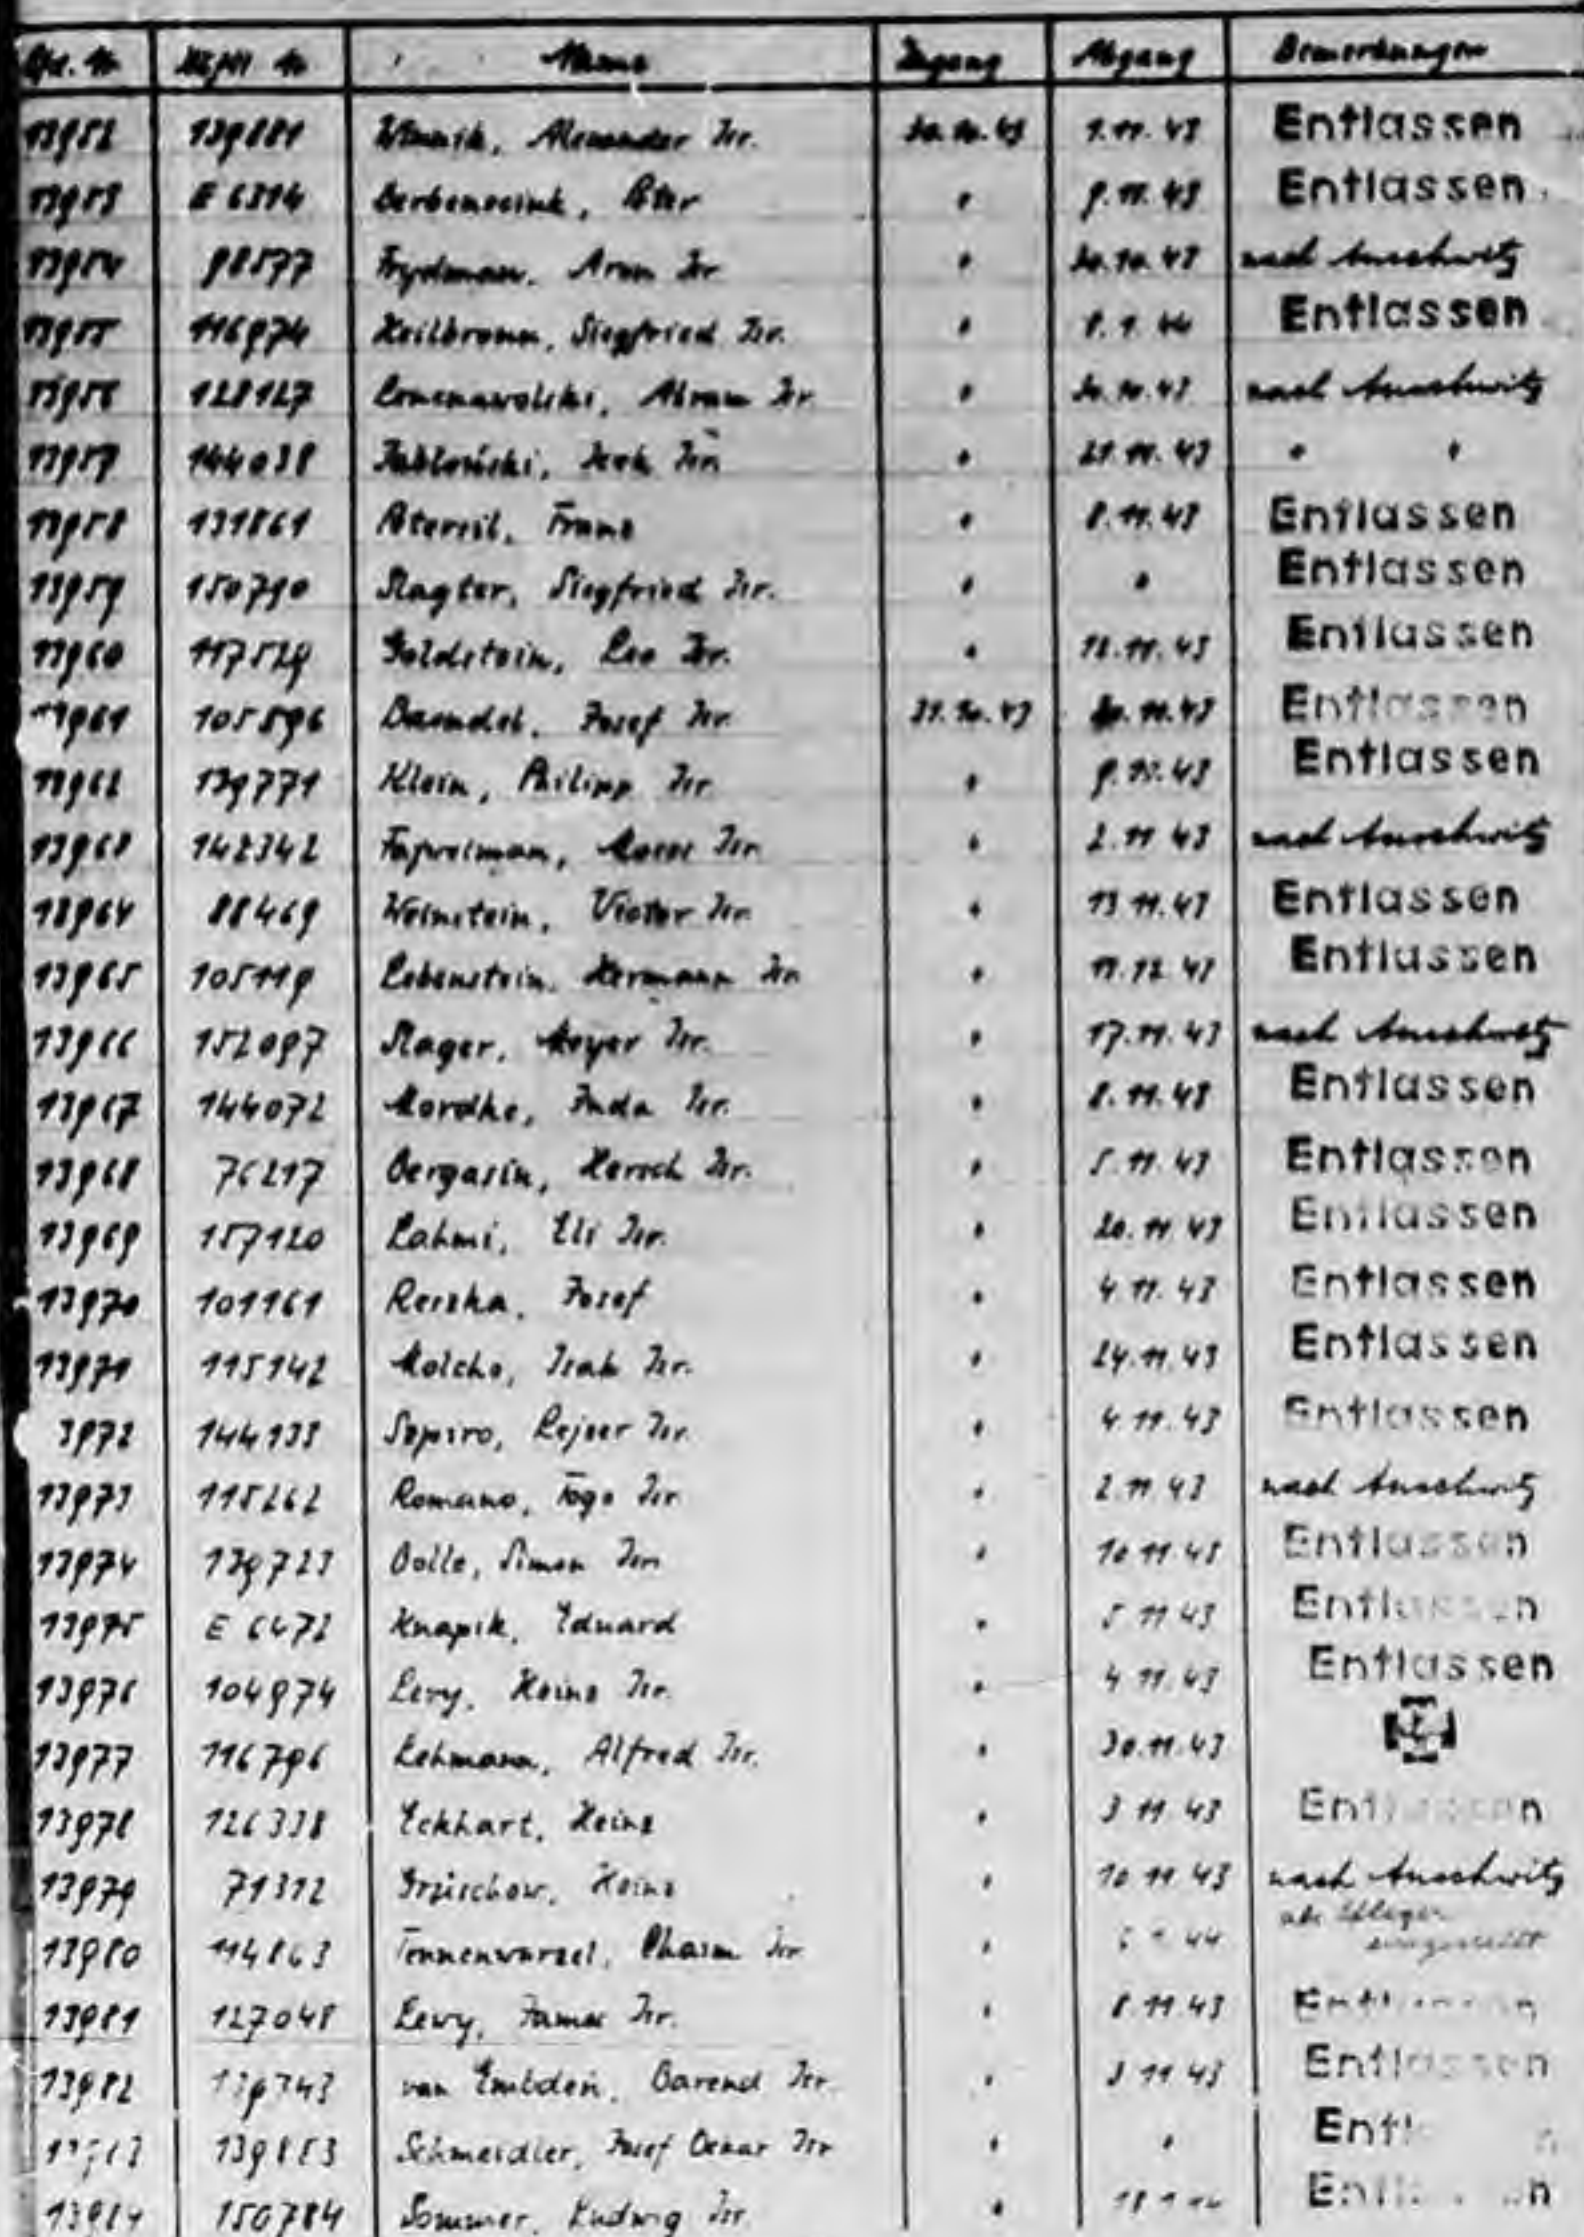 Lfd. Nr Häftl. Nr Name Zugang Abgang Bemerkungen
13952 139881 Winnik, Alexander Isr. 30.10.43 9.11.43 Entlassen
13953 E 6314 Peter " 9.11.43 Entlassen
13954 98577 Frydman, Aron Isr. " 30.10.43 nach Auschwitz
13955 116974 Heilbronn, Siegfried Isr. " 8.1.44 Entlassen
13956 128127 Abram Isr. " 30.10.43 nach Auschwitz
13957 144038 Jabloński, Isr. " 21.11.43 " "
13958 131861 Franz " 8.11.43 Entlassen
13959 150790 Slagter, Siegfried Isr. " " Entlassen
13960 117529 Goldstein, Leo Isr. " 12.11.43 Entlassen
13961 105596 Josef Isr. 31.10.43 30.11.43 Entlassen
13962 139771 Klein, Philipp Isr. " 9.11.43 Entlassen
13963 142342 Isr. " 2.11.43 nach Auschwitz
13964 88469 Weinstein, Victor Isr. " 13.11.43 Entlassen
13965 105119 Lebenstein, Hermann Isr. " 11.12.43 Entlassen
13966 152097 Slager, Meyer Isr. " 17.11.43 nach Auschwitz
13967 144072 Mordke, Juda Isr. " 8.11.43 Entlassen
13968 76217 Bergasin, Hersch Isr. " 5.11.43 Entlassen
13969 157120 Lahmi, Eli Isr. " 20.11.43 Entlassen
13970 101161 Reiszka, Josef " 4.11.43 Entlassen
13971 115142 Molcho, Isak Isr. " 24.11.43 Entlassen
3972 144133 Sapiro, Lejser Isr. " 4.11.43 Entlassen
13973 115262 Romano, Togo Isr. " 2.11.43 nach Auschwitz
13974 139723 Dolle, Simon Isr. " 10.11.43 Entlassen
13975 E 6472 Knapik, Eduard " 5.11.43 Entlassen
13976 104974 Levy, Heinz Isr. " 4.11.43 Entlassen
13977 116796 Lehmann, Alfred Isr. " 30.11.43
13978 126338 Eckhart, Heinz " 3.11.43 Entlassen
13979 71312 Grüschow, Heinz " 10.11.43 nach Auschwitz
13980 114863 Tennenwurzel, Chaim Isr. " als Pfleger
eingestellt
13981 127048 Levy, James Isr. " 8.11.43 Entlassen
13982 139743 van Embden, Barend Isr. " 3.11.43 Entlassen
139853 Schmeidler, Josef Oskar Isr. " " Entlassen
13984 150784 Sommer, Ludwig Isr. " Entlassen